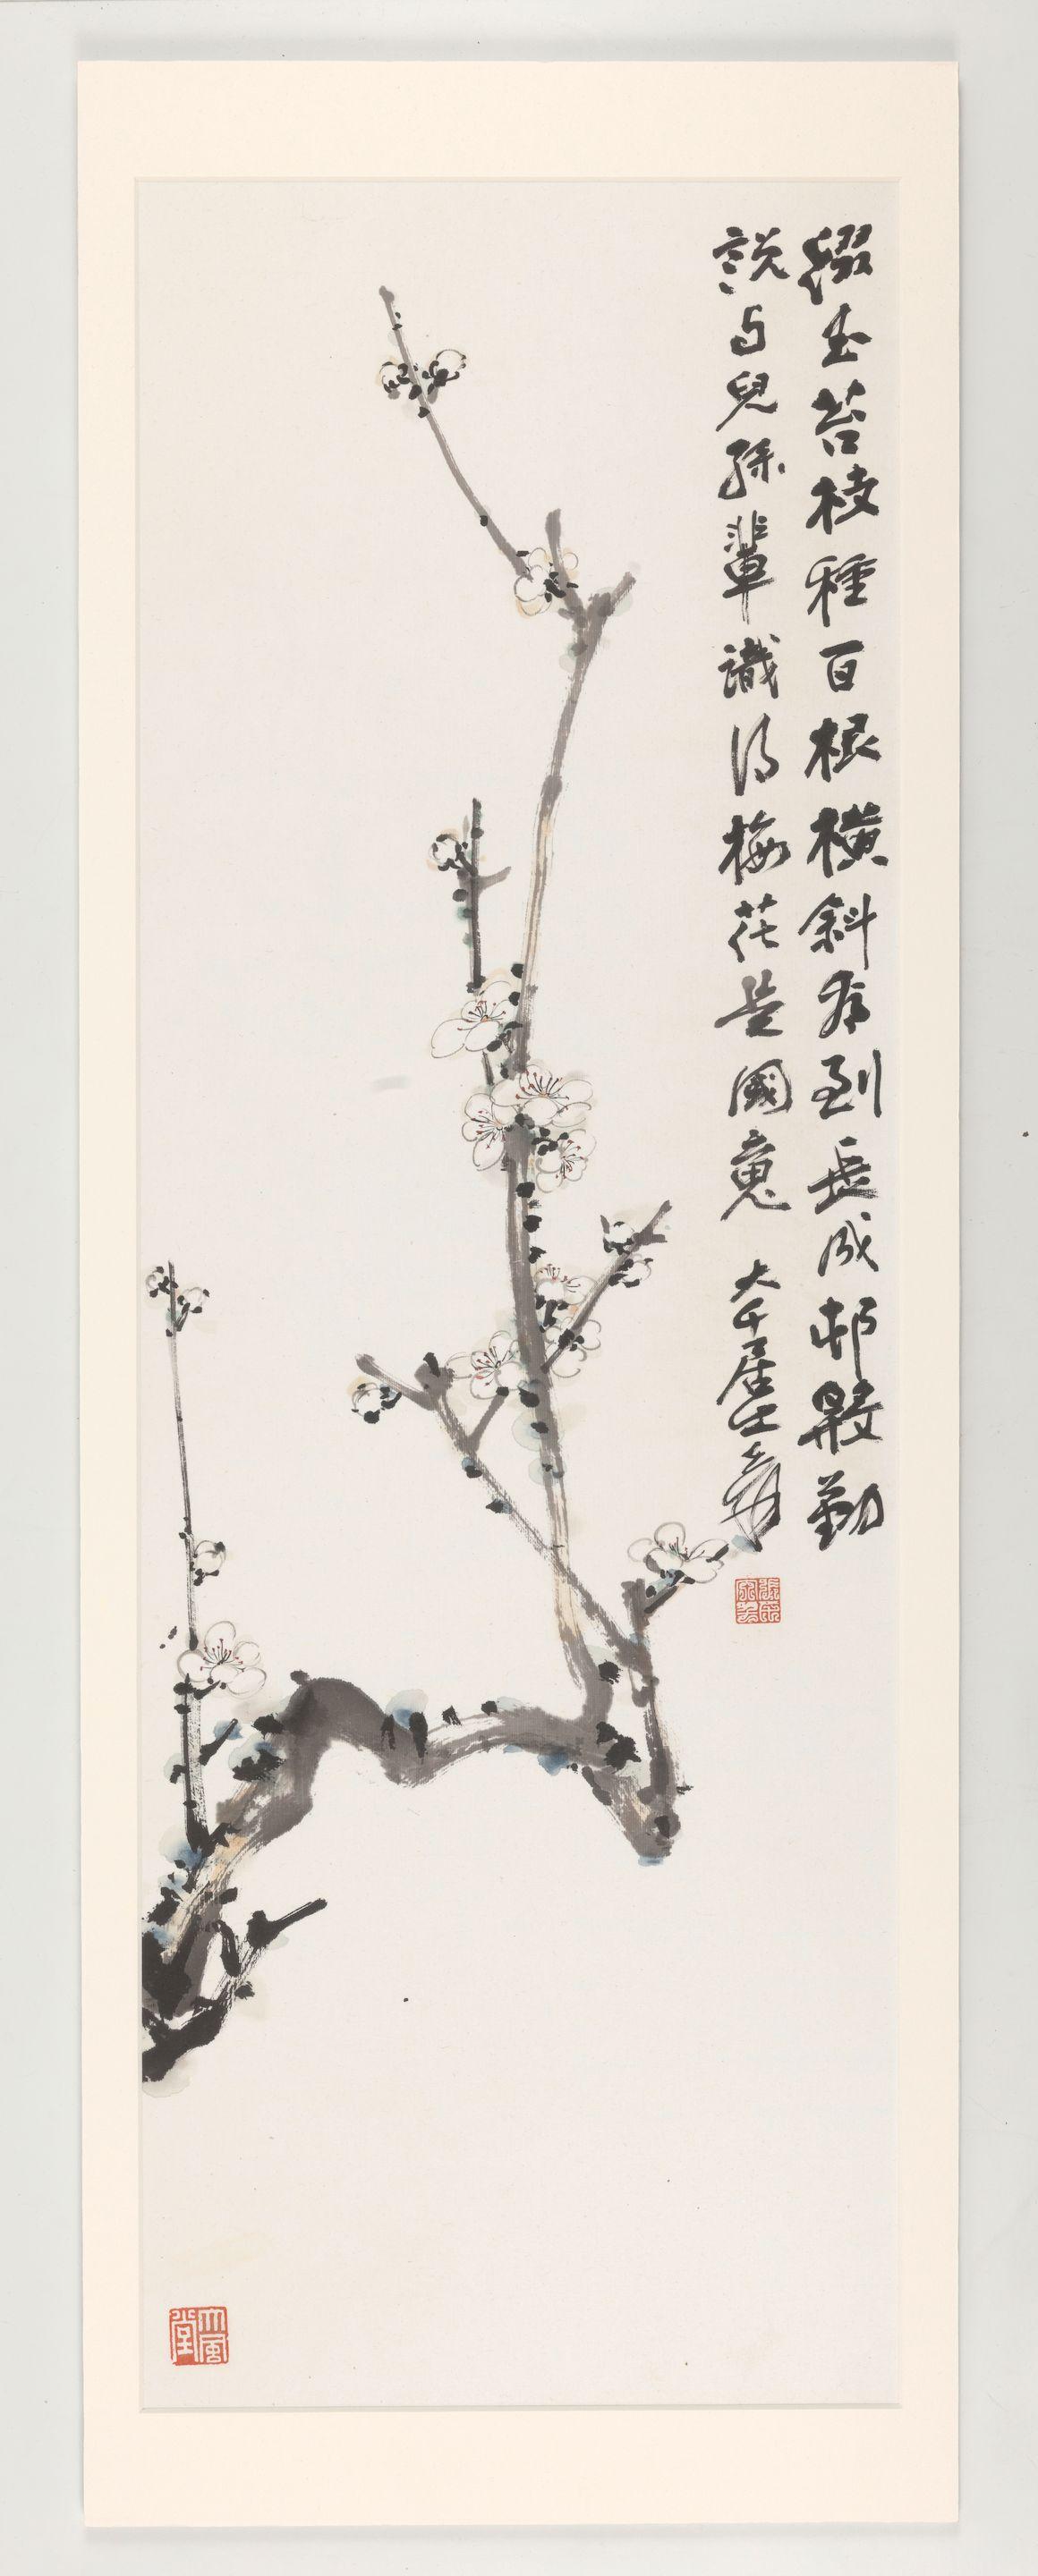 綴玉苔枝種百根橫斜看到長成邨殷勤
說与兒孫輩識得梅花是國䰟 大千居士爰
張爰
大風堂